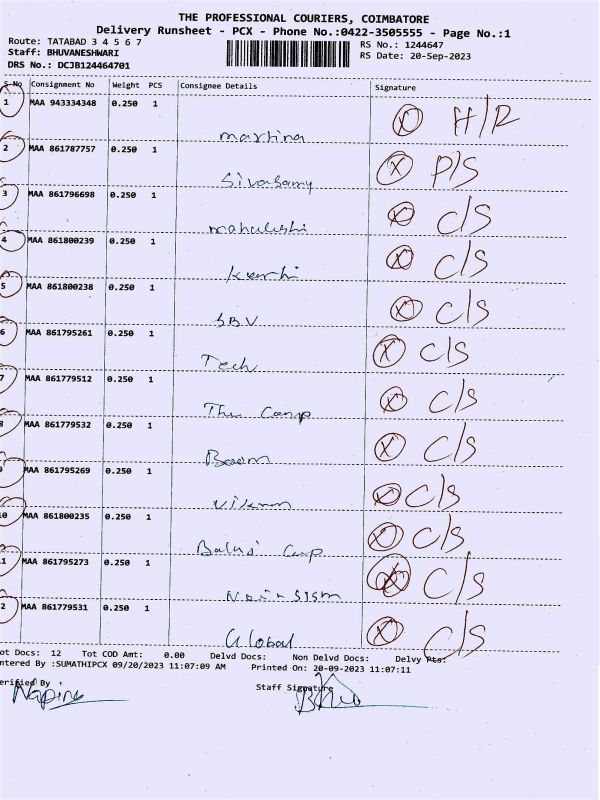 THE PROFESSIONAL COURIERS, COIMBATORE
Delivery Runsheet - PCX - Phone No.:0422-3505555 - Page No.:1
Route: TATABAD 3 4 5 6 7
RS No.: 1244647
Staff: BHUVANESHWARI
RS Date: 20-Sep-2023
DRS No.: DCJB124464701
S No Consignment No Weight PCS Consignee Details Signature
1 MAA 943334348 0.250 1 Martina H/R
2 MAA 861787757 0.250 1 Sivasamy P/S
3 MAA 861796698 0.250 1 C/S
4 MAA 861800239 0.250 1 C/S
5 MAA 861800238 0.250 1 SBV C/S
6 MAA 861795261 0.250 1 Tech C/S
7 MAA 861779512 0.250 1 The Camp C/S
8 MAA 861779532 0.250 1 C/S
9 MAA 861795269 0.250 1 Vikram C/S
10 MAA 861800235 0.250 1 C/S
1 MAA 861795273 0.250 1 C/S
2 MAA 861779531 0.250 1 Global C/S
ot Docs: 12 Tot COD Amt: 0.00 Delvd Docs: Non Delvd Docs: Delvy Pts:
ntered By :SUMATHIPCX 09/20/2023 11:07:09 AM Printed On: 20-09-2023 11:07:11
erified By
Staff Signature